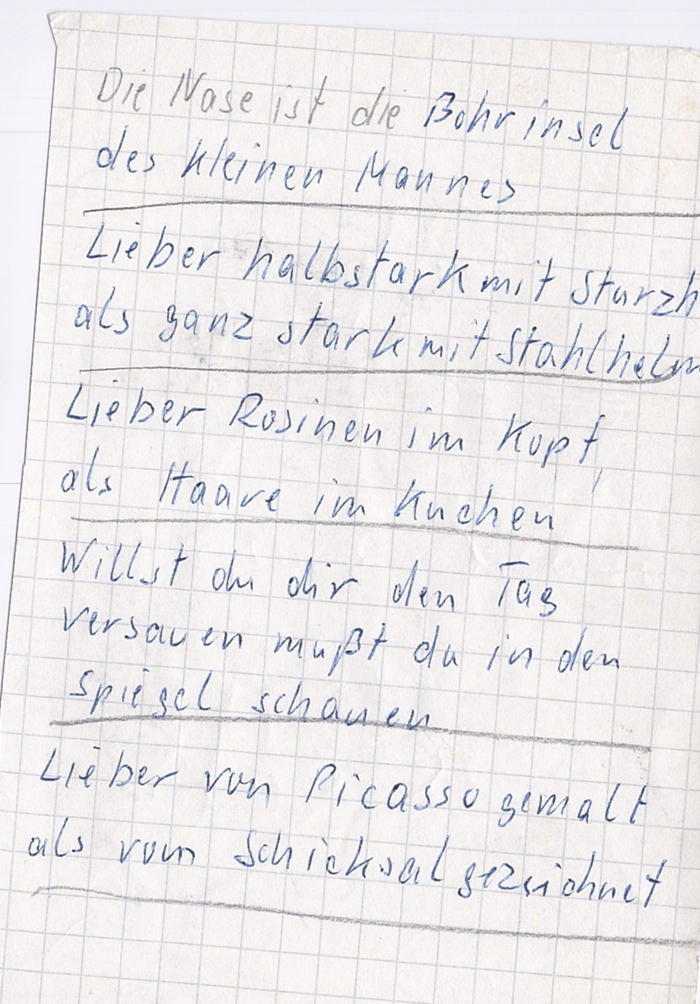 Die Nase ist die Bohrinsel
des kleinen Mannes
Lieber halbstark mit Sturzh
als ganz stark mit Stahlhelm
Lieber Rosinen im Kopf,
als Haare im Kuchen
Willst du dir den Tag
versauen mußt du in den
Spiegel schauen
Lieber von Picasso gemalt
als vom Schicksal gezeichnet